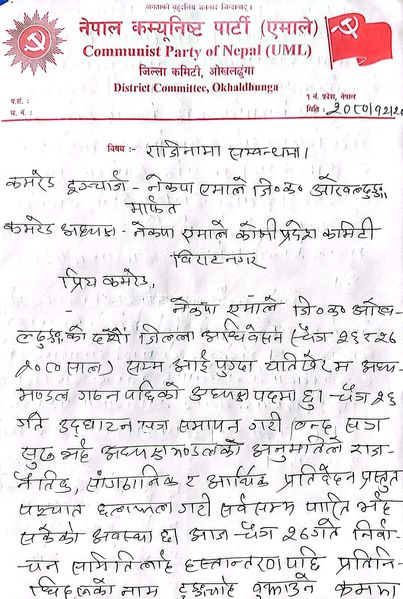 जनताको बहुदलीय जनवाद जिन्दाबाद !
नेपाल कम्युनिष्ट पार्टी (एमाले)
Communist Party of Nepal (UML)
जिल्ला कमिटी, ओखलढुंगा
District Committee, Okhaldhunga
प.सं. :
च. नं. :
१ नं. प्रदेश, नेपाल
मिति : २०८०/१२/२
विषय :- राजिनामा सम्बन्धमा।
कमरेड इन्चार्ज - नेकपा एमाले जि०क० ओखलढुङ्गा
मार्फत
कमरेड अध्यक्ष - नेकपा एमाले कोशी प्रदेश कमिटी
विराटनगर
प्रिय कमरेड,
- नेकपा एमाले जि०क० ओख-
लढुङ्गाको दशौं जिल्ला अधिवेसन चैत्र २६ र २७
२०८० साल) सम्म आई पुग्दा यतिखेर म अध्य-
मण्डल गठन पछिको अध्यक्ष पदमा छु। चैत्र २६
गते उद्घाटन सत्र समापन गरी बन्द सत्र
सुरु भई अध्यक्षमण्डलको अनुमतिले राज-
नैतिक, सांगठानिक र आर्थिक प्रतिवेदन प्रस्तुत
पश्चात छलफल गरी सर्वसम्म पारित भई
सकेको अवस्था छ। आज चैत्र २७ गते निर्वा-
चन समितिलाई हस्तान्तरण पछि प्रतिनि-
धिहरूको नाम बुझाउने क्रममा